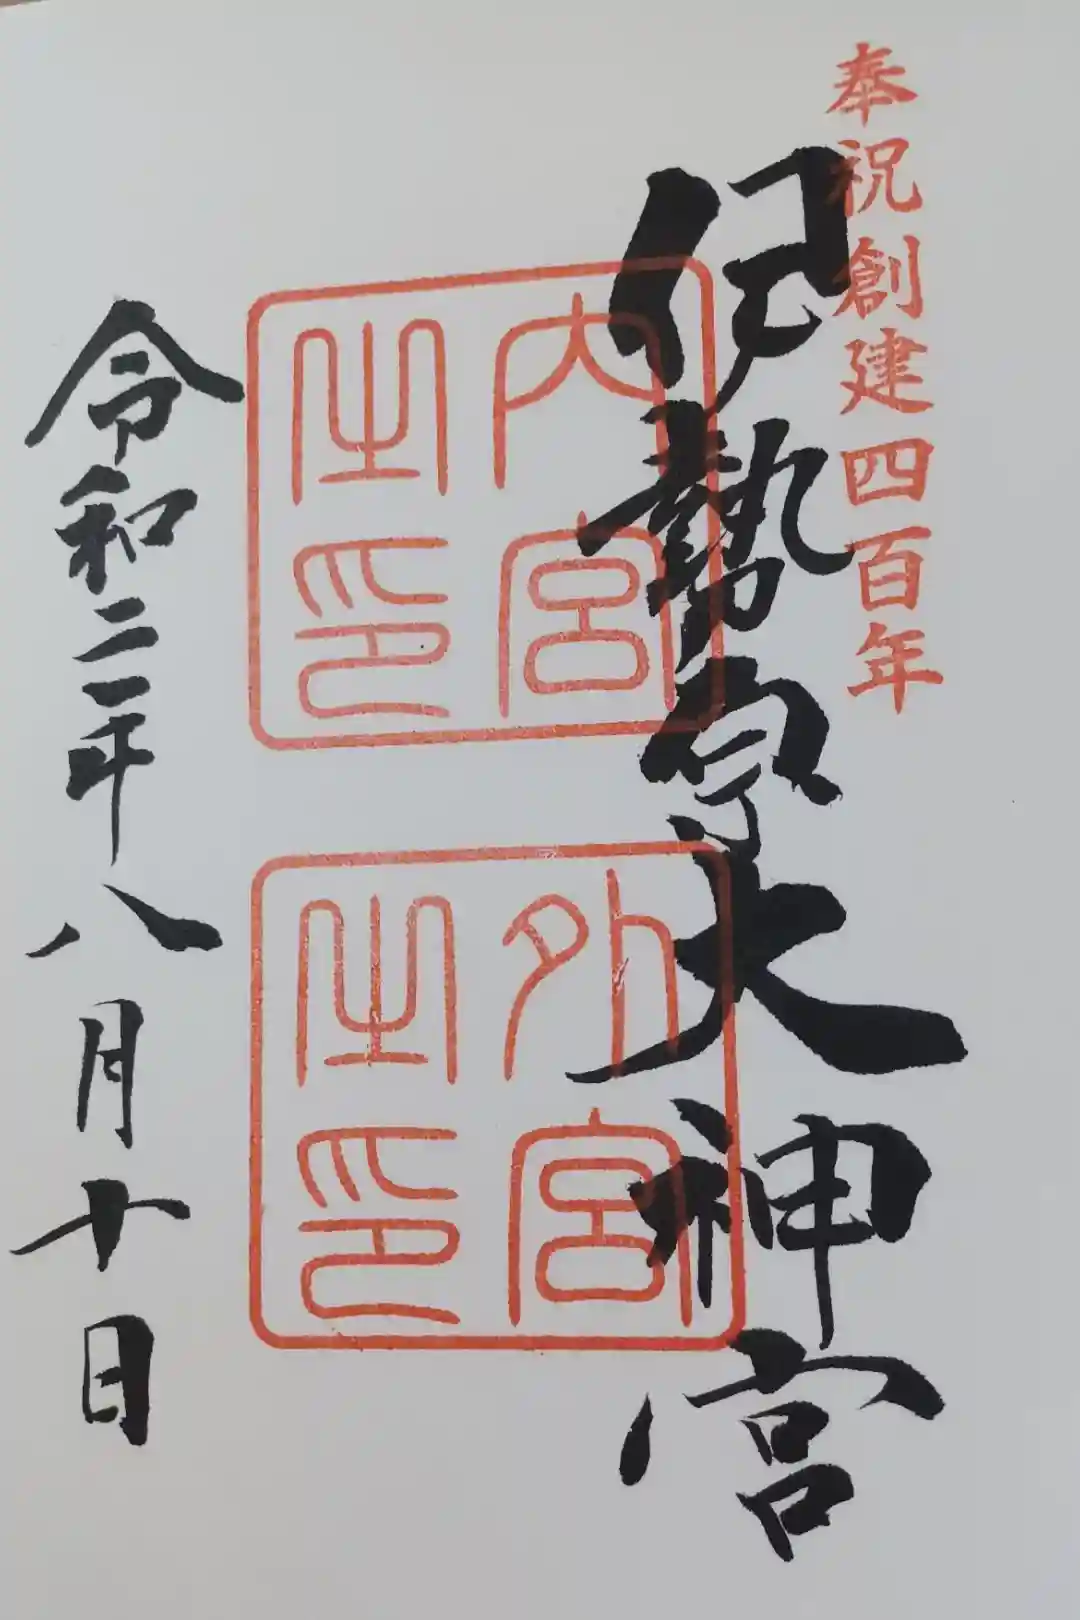 奉祝創建四百年
伊勢宗大神宮
内宮
之印
外宮
之印
令和二年八月十日